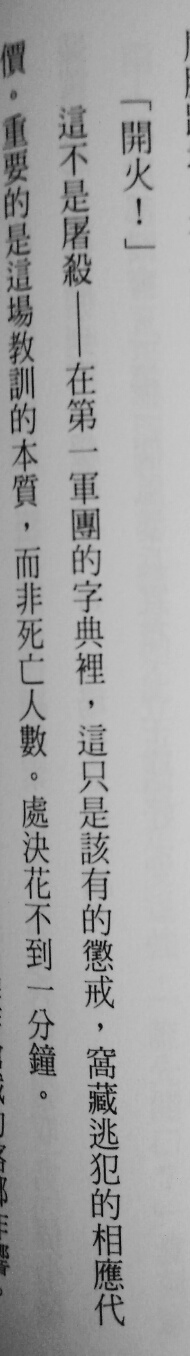 「開火！」
這不是屠殺——在第一軍團的字典裡，這只是該有的懲戒，窩藏逃犯的相應代
價。重要的是這場教訓的本質，而非死亡人數。處決花不到一分鐘。